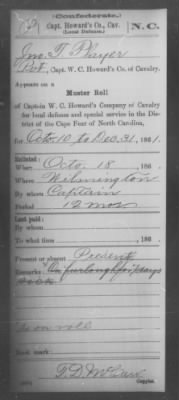 Confederate.
Capt. Howard's Co., Cav.
(Local Defense.)
N. C.
Jno. T. Player
Pvt., Capt. W. C. Howard's Co. of Cavalry
Appears on a
Muster Roll
of Captain W. C. Howard's Company of Cavalry
for local defense and special service in the Dis-
trict of the Cape Fear of North Carolina,
for Octo. 10 to Dec. 31, 1861.
Enlisted:
When Octo. 18, 186 .
Where Wilmington
By whom Captain
Period 12 mos
Last paid:
By whom
To what time , 186 .
Present or absent Present
Remarks: On furlough for 7 days
sick
as on roll
Book mark:
Copyist.